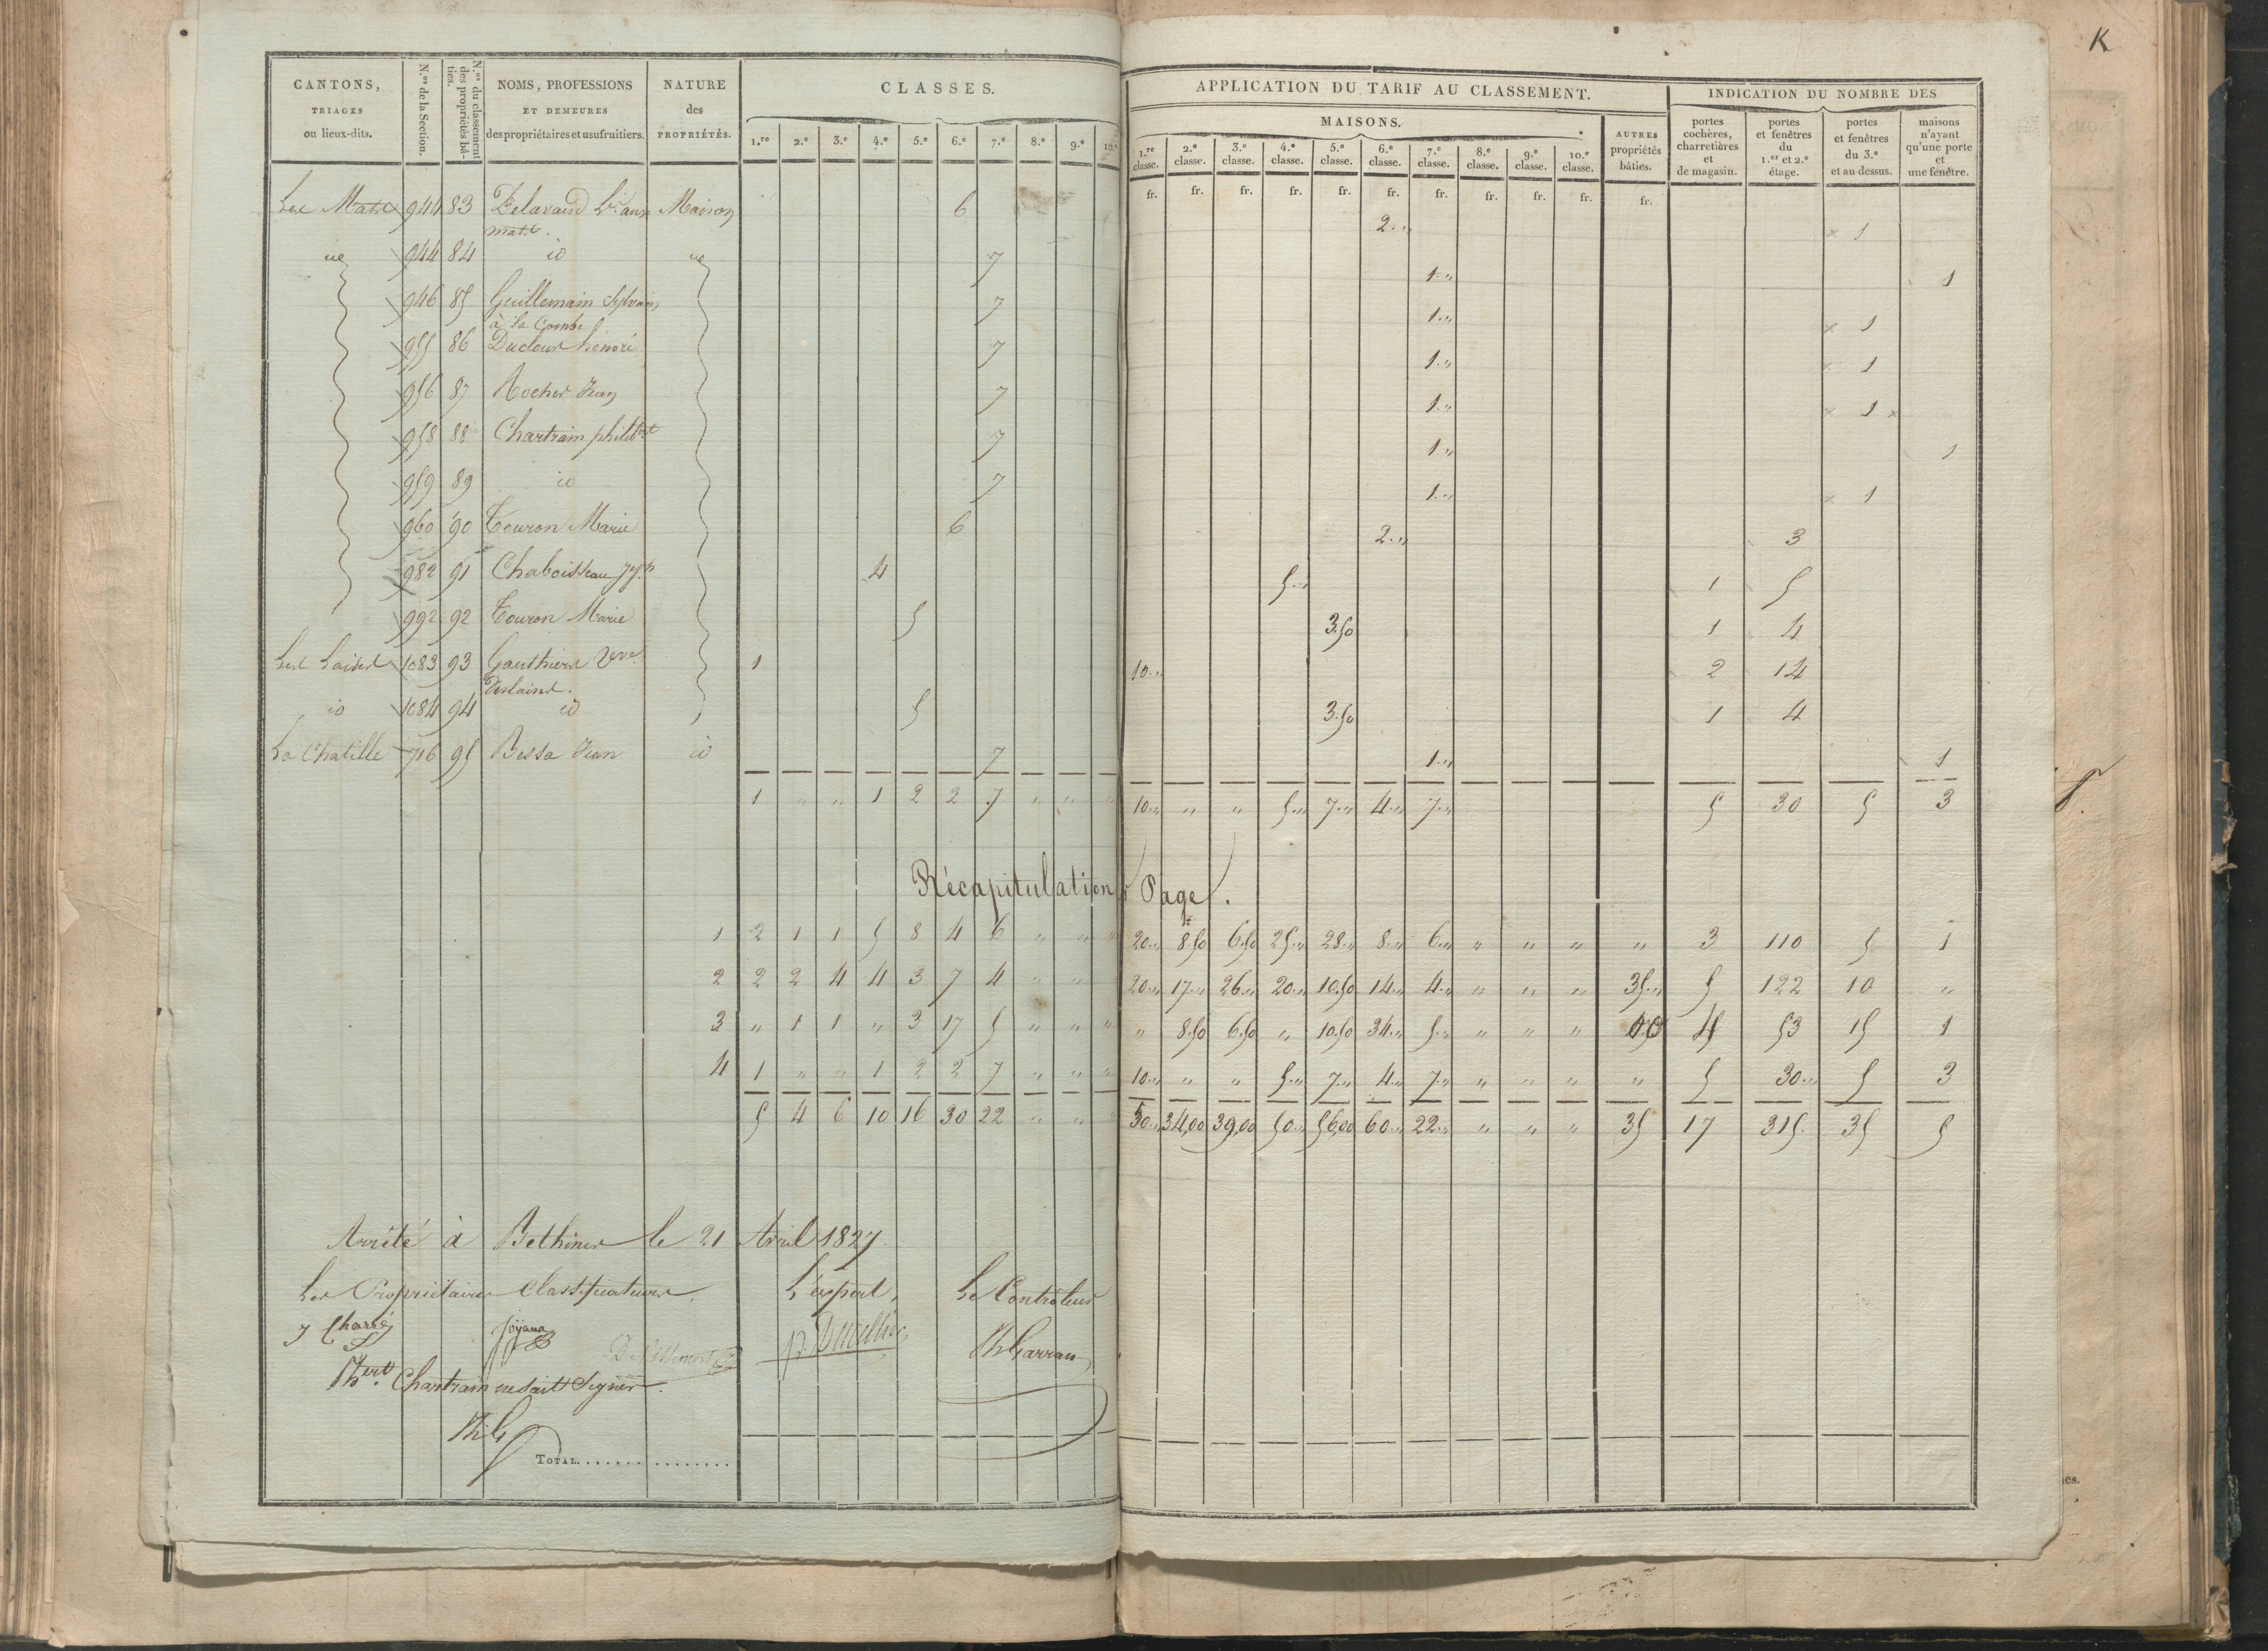 K
CANTONS, TRIAGES ou lieux-dits. | N.os de la Section. | N.os du classement des propriétés bâties. | NOMS, PROFESSIONS ET DEMEURES des propriétaires et usufruitiers. | NATURE des PROPRIÉTÉS. | CLASSES. | APPLICATION DU TARIF AU CLASSEMENT. | INDICATION DU NOMBRE DES
1.re 2.e 3.e 4.e 5.e 6.e 7.e 8.e 9.e 10.e
MAISONS.
1.re classe. 2.e classe. 3.e classe. 4.e classe. 5.e classe. 6.e classe. 7.e classe. 8.e classe. 9.e classe. 10.e classe. | AUTRES propriétés bâties. | portes cochères, charretières et de magasin. | portes et fenêtres du 1.er et 2.e étage. | portes et fenêtres du 3.e et au dessus. | maisons n'ayant qu'une porte et une fenêtre.
fr. fr. fr. fr. fr. fr. fr. fr. fr. fr. fr.
83 Delavaud Maison 6 2.,, 1
944 84 id 7 1.,, 1
946 85 Guillemain Sylvain 7 1.,, 1
à la Combe
955 86 Duclour honoré 7 1.,, 1
956 87 Rocher Jean 7 1.,, 1
958 88 Chartrain philibert 7 1.,, 1
959 89 id 7 1.,, 1
960 90 Touron Marie 6 2.,, 3
982 91 Chaboisseau 4 5.,, 1 5
992 92 Touron Marie 5 3.50 1 4
1083 93 Gauthier Veve 1 10.,, 2 14
id 1084 94 id 5 3.50 1 4
La Chatille 716 95 Bessa Jean id 7 1.,, 1
1 ,, ,, 1 2 2 7 ,, ,, ,, 10.,, ,, ,, 5.,, 7.,, 4.,, 7.,, 5 30 5 3
Récapitulation Page.
1 2 1 1 5 8 4 6 ,, ,, ,, 20.,, 8.50 6.50 25.,, 28.,, 8.,, 6.,, ,, ,, ,, ,, 3 110 5 1
2 2 2 4 4 3 7 4 ,, ,, 20.,, 17.,, 26.,, 20.,, 10.50 14.,, 4.,, ,, ,, ,, 35.,, 5 122 10 ,,
3 ,, 1 1 ,, 3 17 5 ,, ,, ,, ,, 8.50 6.50 ,, 10.50 34.,, 5.,, ,, ,, ,, 4 53 15 1
4 1 ,, ,, 1 2 2 7 ,, ,, ,, 10.,, ,, ,, 5.,, 7.,, 4.,, 7.,, ,, ,, ,, ,, 5 30.,, 5 3
5 4 6 10 16 30 22 ,, ,, ,, 50.,, 34,00 39,00 50.,, 56,00 60.,, 22.,, ,, ,, ,, 35 17 315. 35 5
Arrêté à Bethines le 21 Avril 1827.
Les Propriétaires Classificateurs, L'expert, Le Contrôleur
Charré Joyaua
Chartrain ne sait signer.
TOTAL